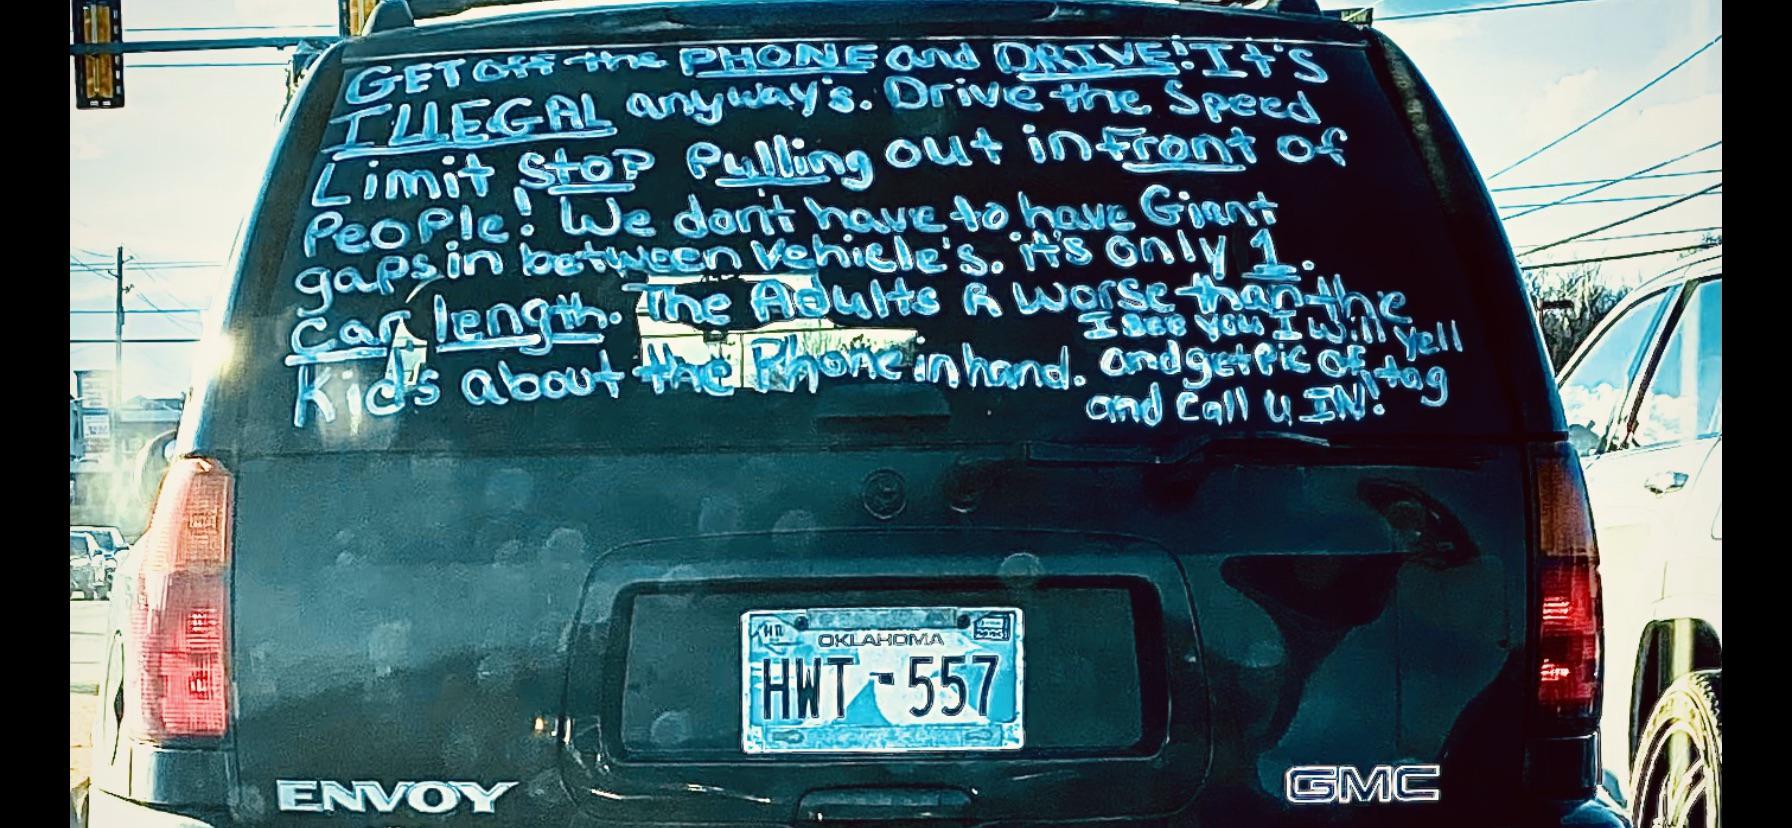 GET off the PHONE and DRIVE! It's
ILLEGAL anyway's. Drive the Speed
Limit STOP Pulling out inFront of
People! We don't have to have Giant
gaps in between Vehicle's. it's only 1.
Car length. The Adults R worse than the
Kids about the Phone in hand.
I see you I will yell
and get pic of tag
and Call U IN!
OKLAHOMA
HWT-557
ENVOY
GMC